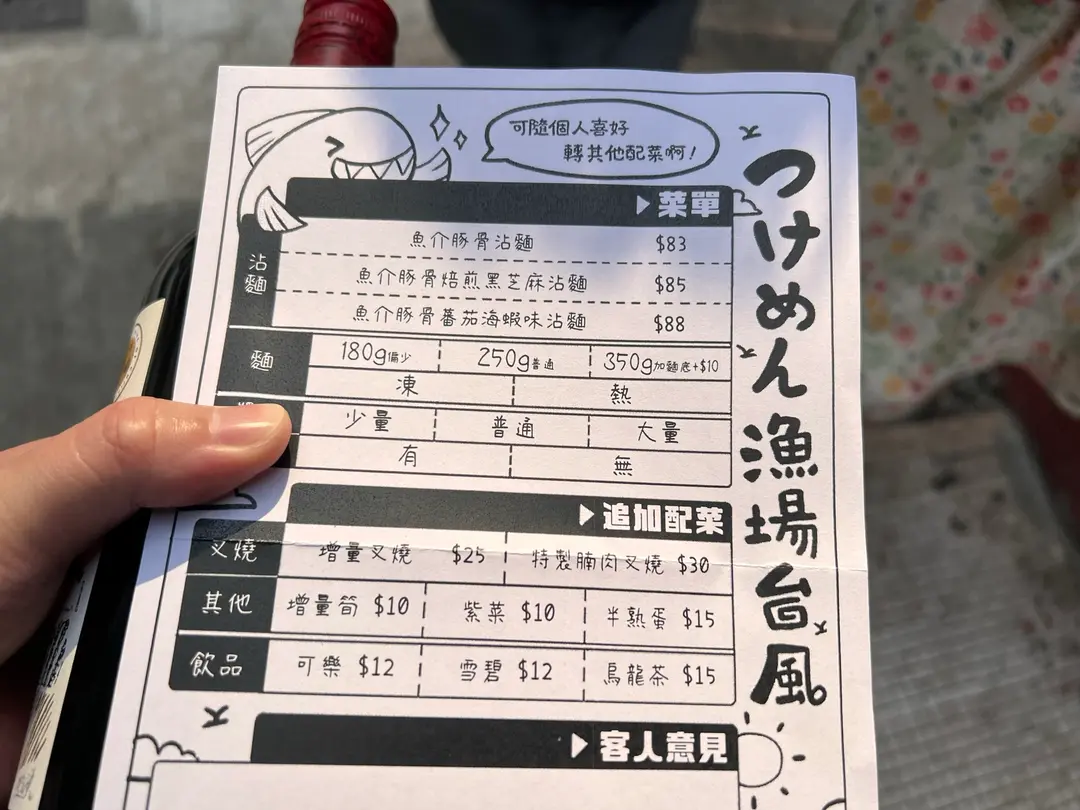 可隨個人喜好
轉其他配菜啊!
つけめん漁場台風
▶菜單
沾麵
魚介豚骨沾麵 $83
魚介豚骨焙煎黑芝麻沾麵 $85
魚介豚骨蕃茄海蝦味沾麵 $88
麵
180g偏少 250g普通 350g加麵底+$10
凍 熱
少量 普通 大量
有 無
▶追加配菜
叉燒 增量叉燒 $25 特製腩肉叉燒 $30
其他 增量筍 $10 紫菜 $10 半熟蛋 $15
飲品 可樂 $12 雪碧 $12 烏龍茶 $15
▶客人意見